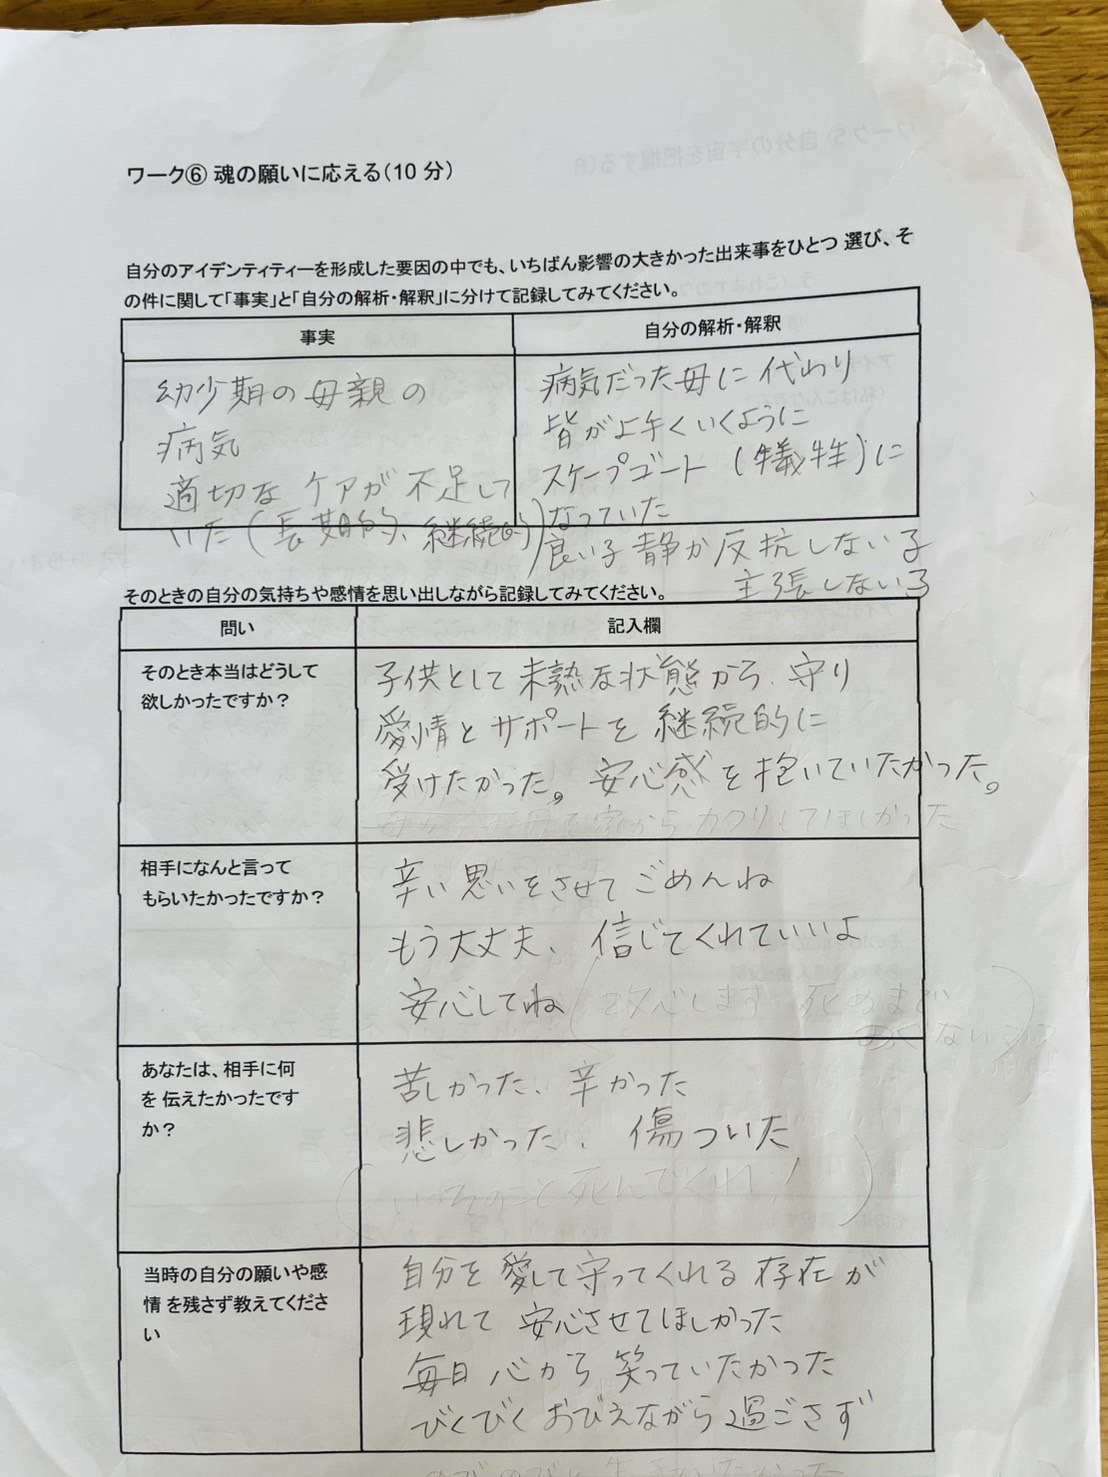 ワーク⑥ 魂の願いに応える(10 分)
自分のアイデンティティーを形成した要因の中でも、いちばん影響の大きかった出来事をひとつ 選び、そ
の件に関して「事実」と「自分の解析・解釈」に分けて記録してみてください。
事実
自分の解析・解釈
幼少期の母親の
病気
適切なケアが不足して
いた(長期的、継続的)
病気だった母に代わり
皆が上手くいくように
スケープゴート(犠牲)に
なっていた
良い子 静か 反抗しない子
主張しない子
そのときの自分の気持ちや感情を思い出しながら記録してみてください。
問い
記入欄
そのとき本当はどうして
欲しかったですか?
子供として未熟な状態から、守り
愛情とサポートを継続的に
受けたかった。安心感を抱いていたかった。
家から
してほしかった
相手になんと言って
もらいたかったですか?
辛い思いをさせてごめんね
もう大丈夫、信じてくれていいよ
安心してね(改心します 死ぬまで
あなたは、相手に何
を 伝えたかったです
か?
苦しかった、辛かった
悲しかった、傷ついた
(いっそのこと死んでくれ!)
当時の自分の願いや感
情 を残さず教えてくださ
い
自分を愛して守ってくれる存在が
現れて安心させてほしかった
毎日心から笑っていたかった
びくびくおびえながら過ごさず